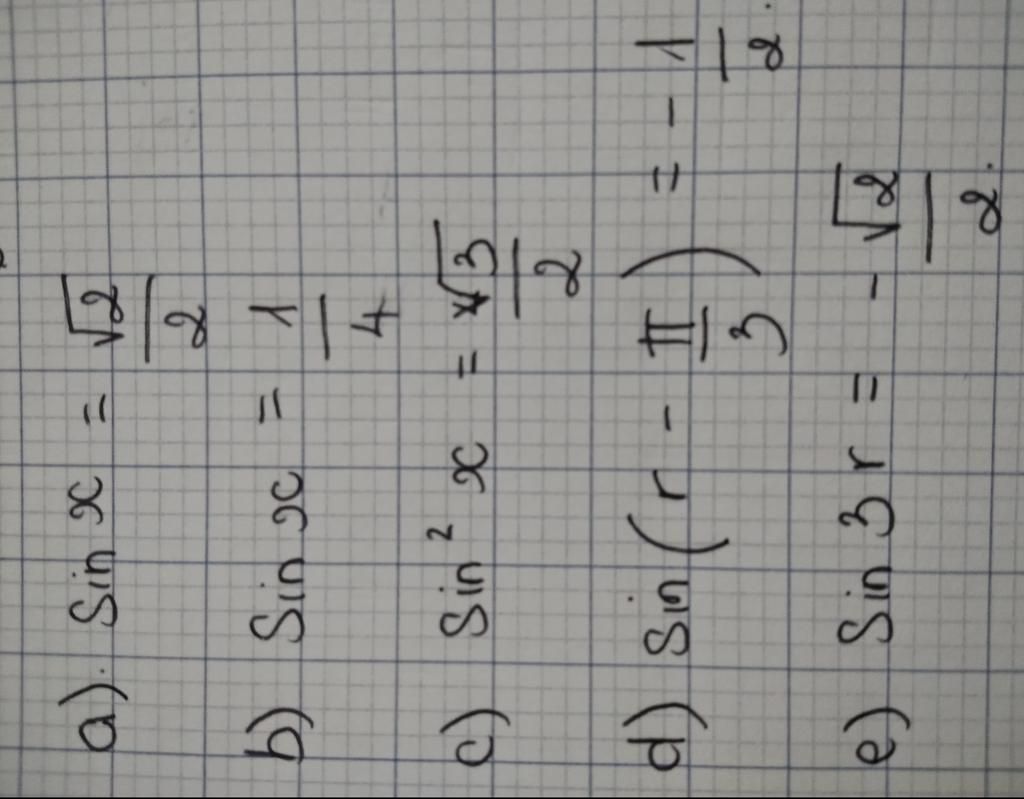 a). Sin x = √2/2
b) Sin x = 1/4
c) Sin² x = √3/2
d) Sin (r - π/3) = - 1/2.
e) Sin 3r = - √2/2.